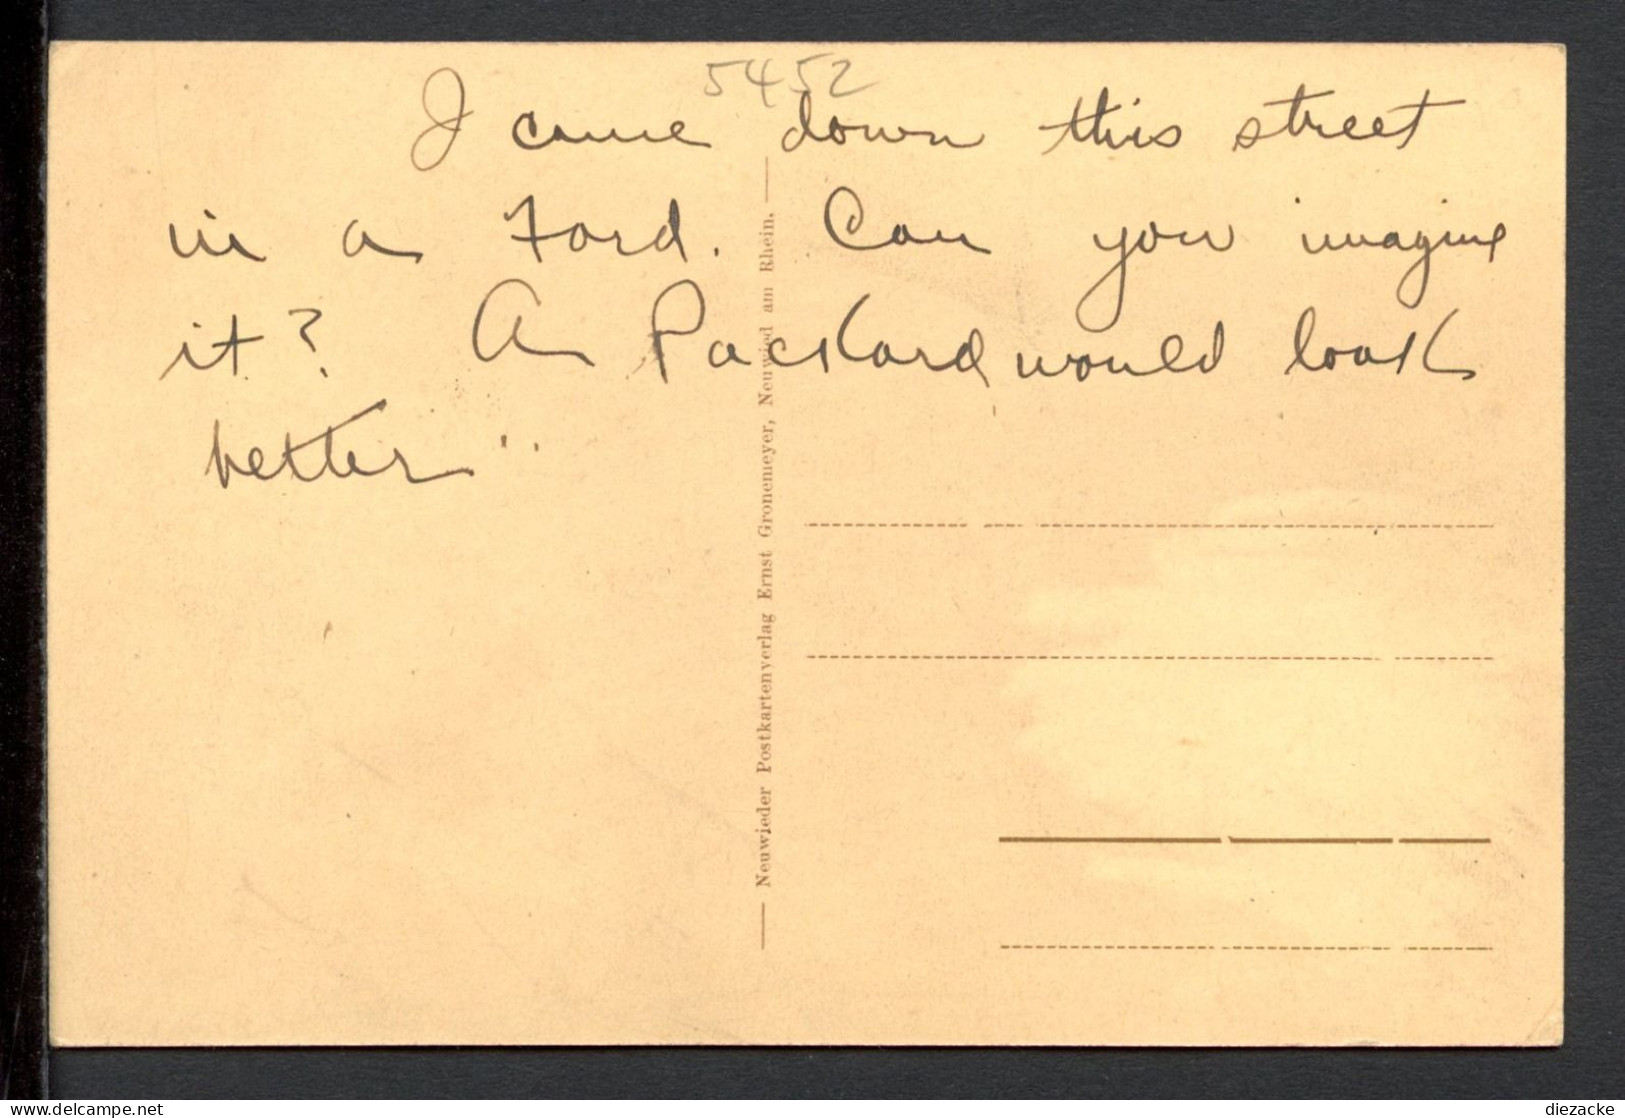 5452
I came down this street
in a Ford. Can you imagine
it? A Packard would look
better..
Neuwieder Postkartenverlag Ernst Gronemeyer, Neuwied am Rhein.
www.delcampe.net
diezacke